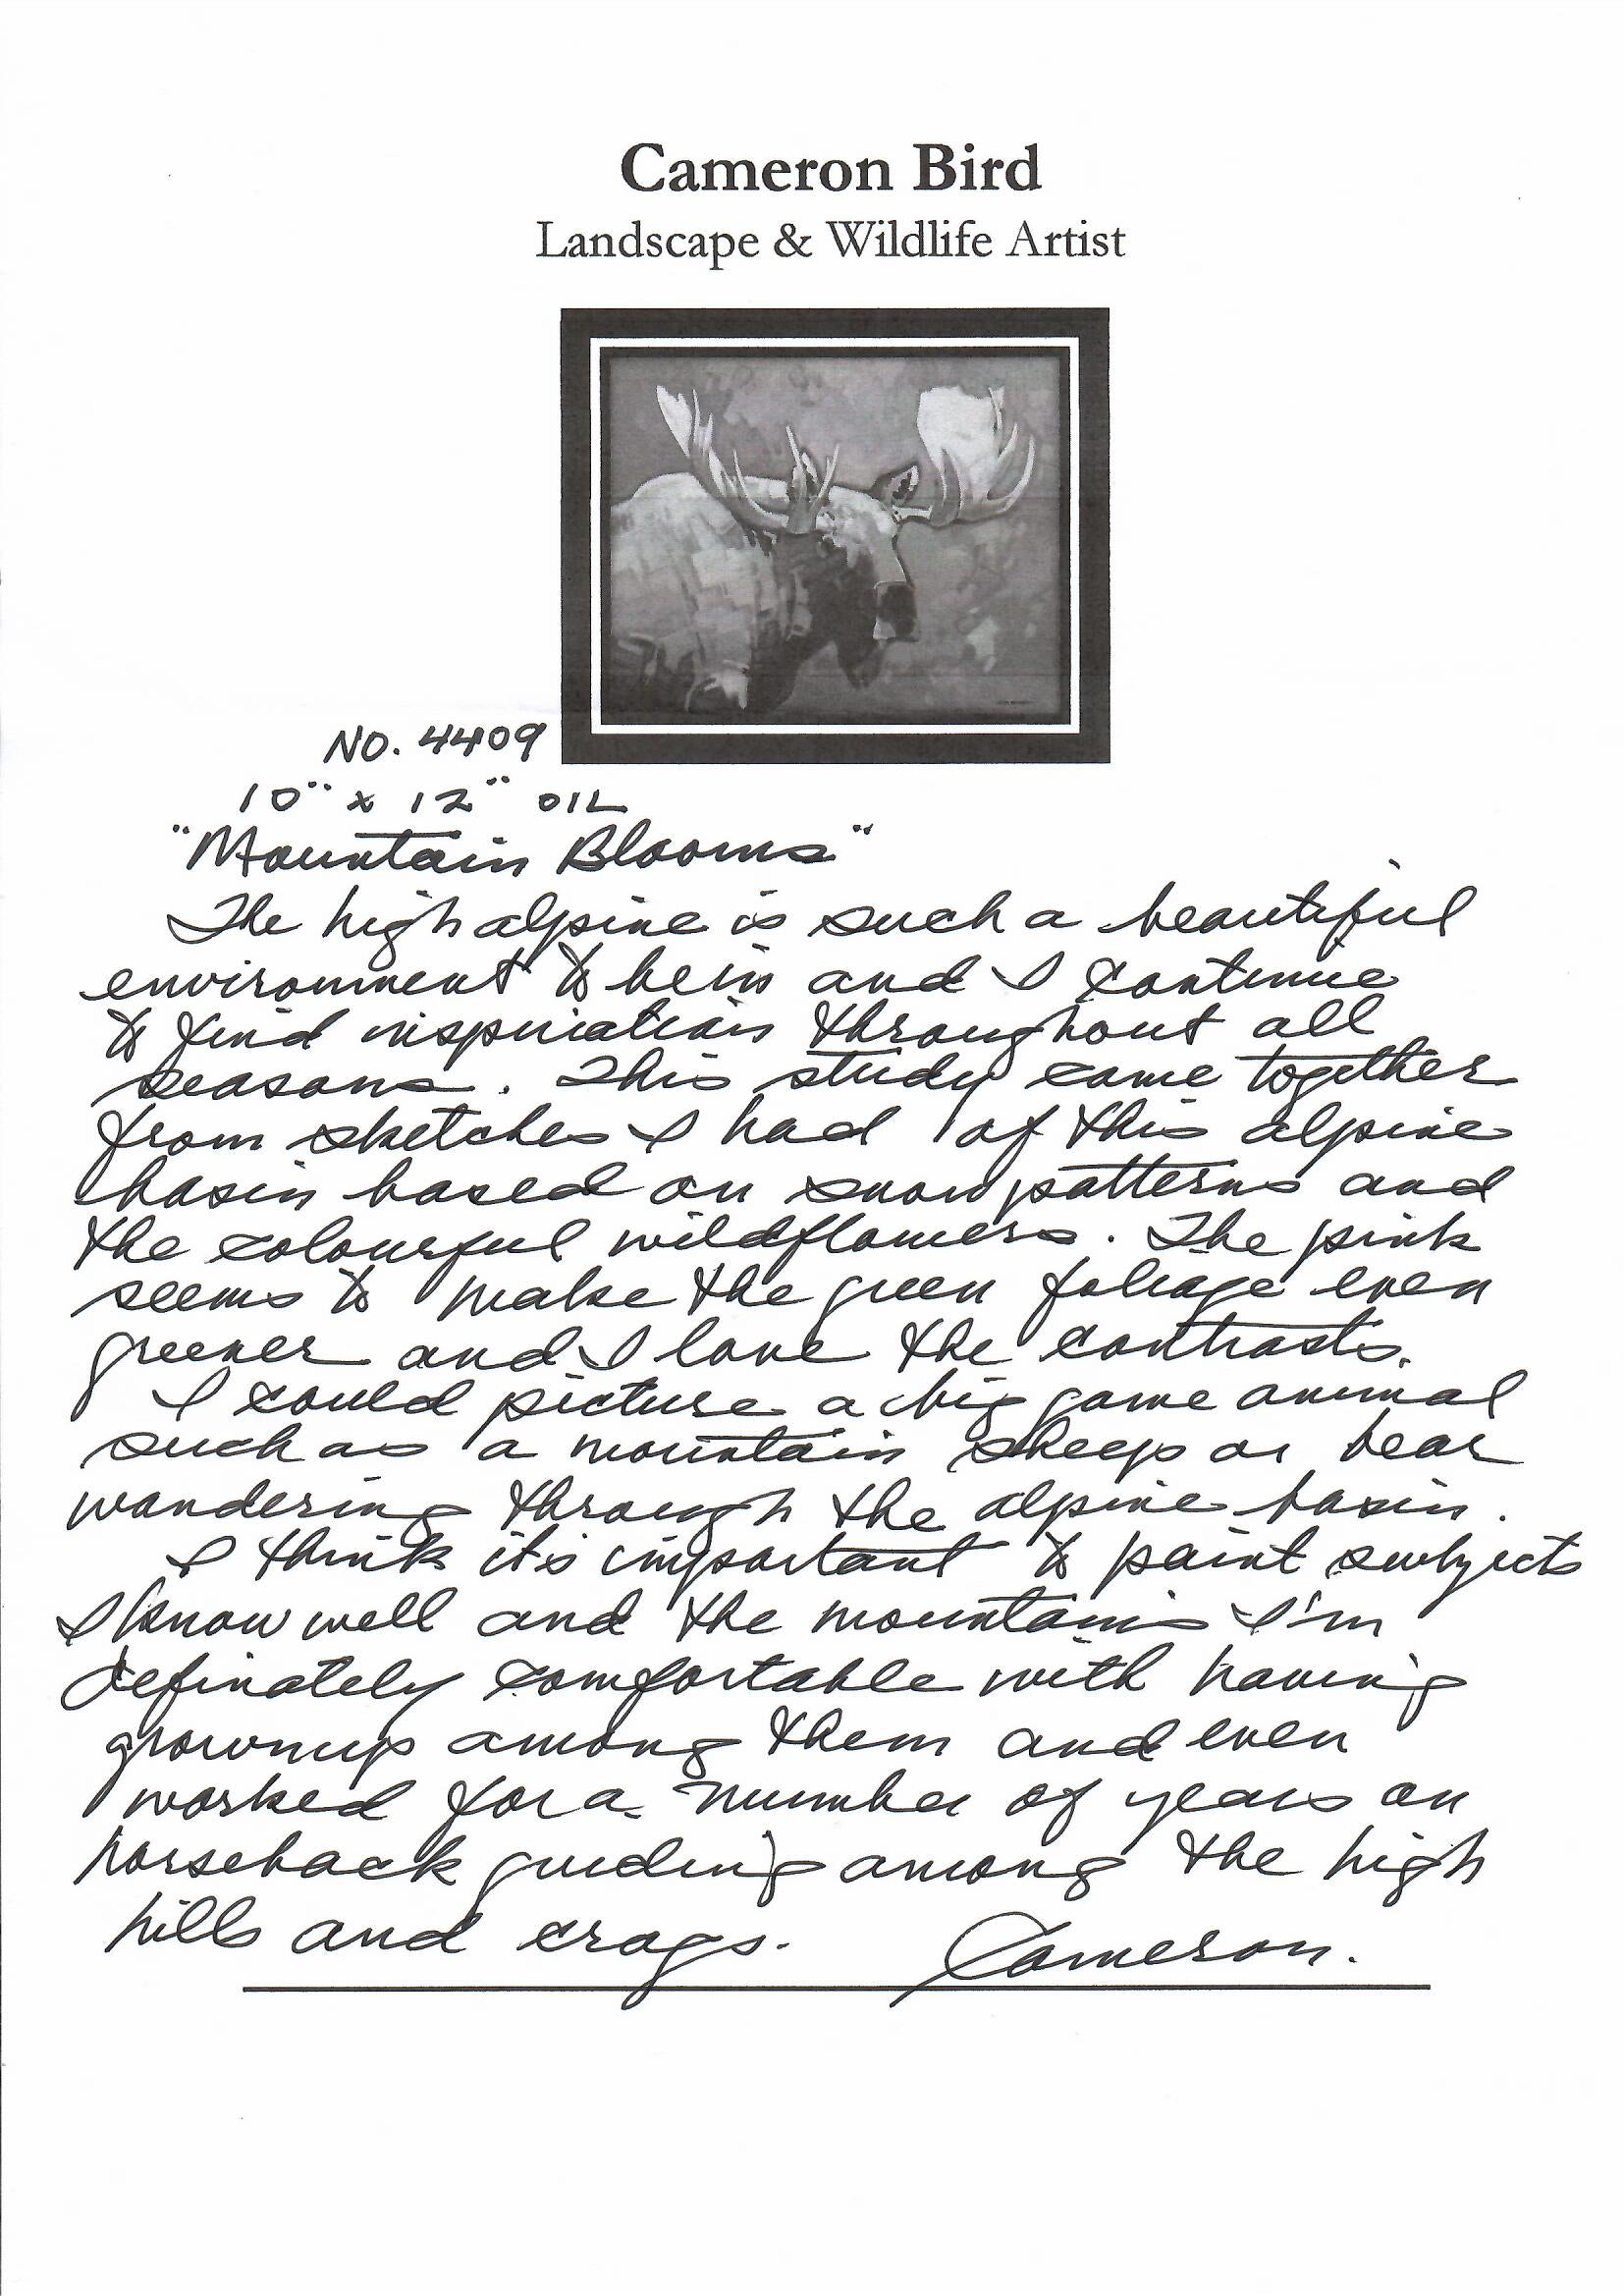 Cameron Bird
Landscape & Wildlife Artist
NO. 4409
10" x 12" OIL
"Mountain Blooms"
The high alpine is such a beautiful
environment to be in and I continue
to find inspiration throughout all
seasons. This study came together
from sketches I had of this alpine
basin based on snow patterns and
the colourful wildflowers. The pink
seems to make the green foliage even
greener and I love the contrasts.
I could picture a big game animal
such as a mountain sheep or bear
wandering through the alpine basin.
I think it's important to paint subjects
I know well and the mountains I'm
definately comfortable with having
grown up among them and even
worked for a number of years on
horseback guiding among the high
hills and crags. Cameron.